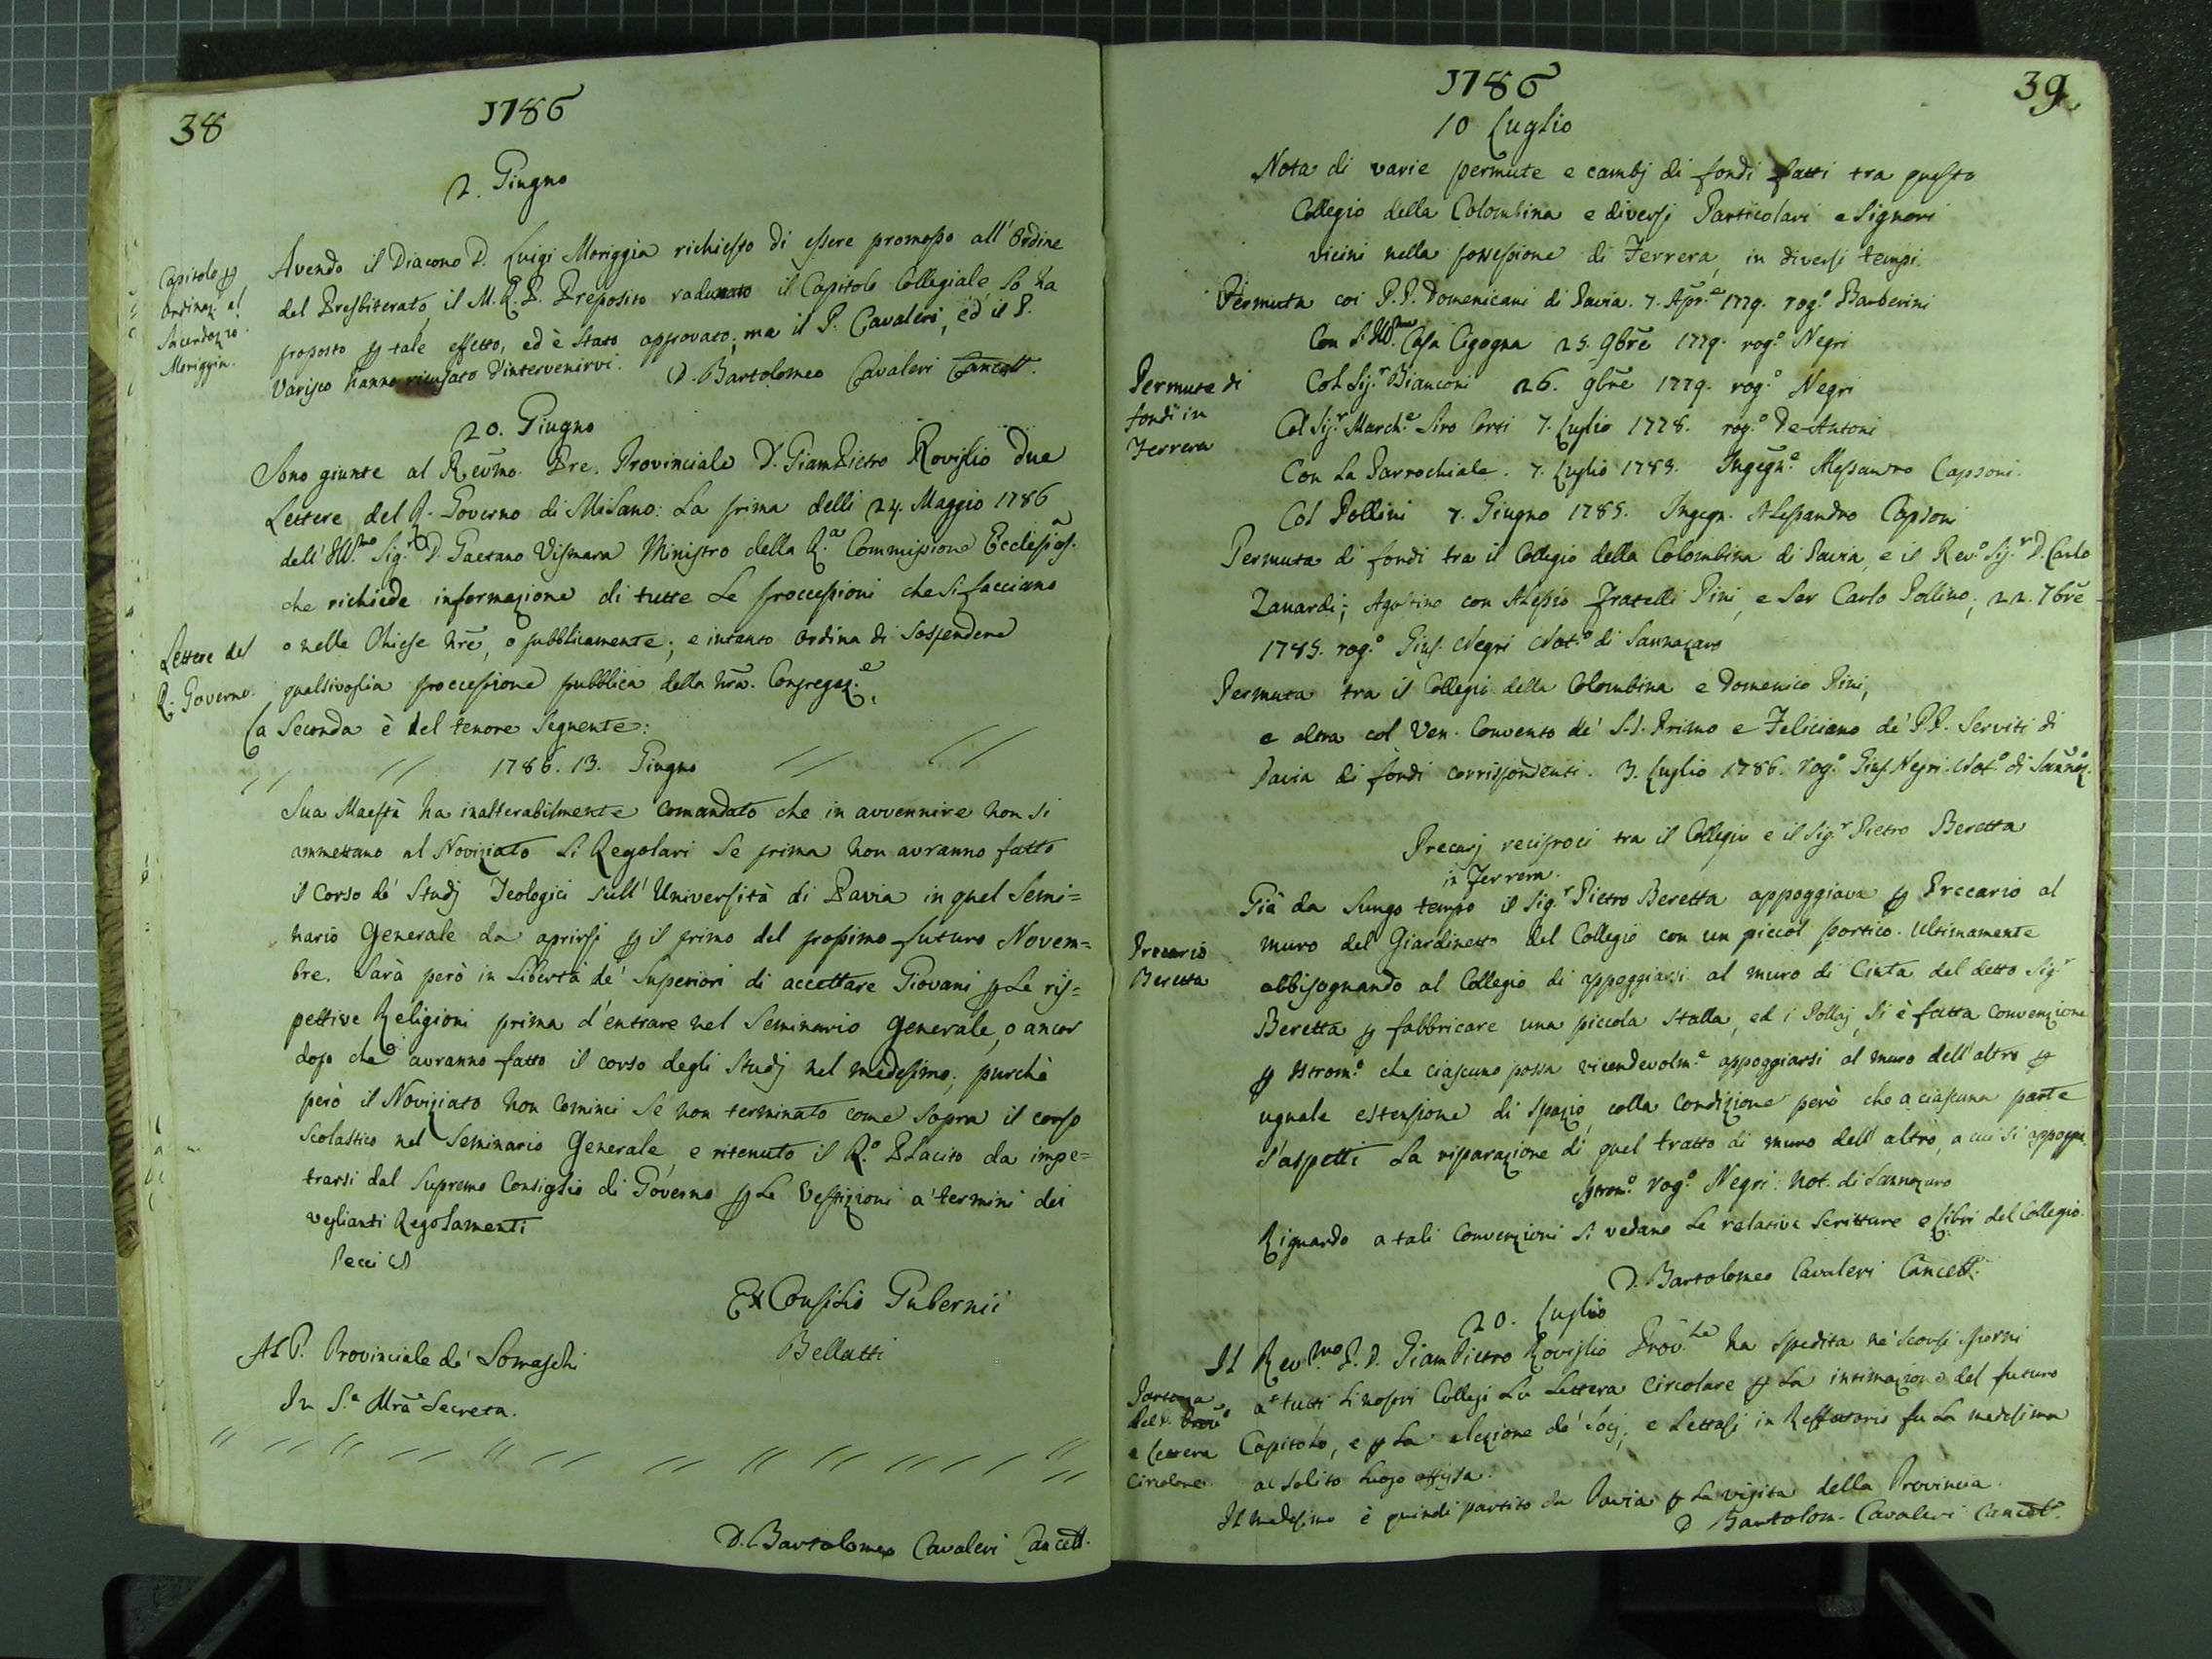 38
1786
2. Giugno
Capitolo p
ordinaz. al
Sacerdozio
Moriggia.
Avendo il Diacono D. Luigi Moriggia richiesto di essere promosso all'Ordine
del Presbiterato, il M. R. P. Preposito radunato il Capitolo Collegiale lo ha
proposto p tale effetto, ed è stato approvato; ma il P. Cavaleri, ed il P.
Varisco hanno ricusato d'intervenirvi. D. Bartolomeo Cavaleri Cancell.
20. Giugno
Sono giunte al Revmo. Pre. Provinciale D. GiamPietro Roviglio due
Lettere del R. Governo di Milano: La prima delli 24. Maggio 1786
dell'Ill.mo Sig.r D. Gaetano Vismara Ministro della R.a Commissione Ecclesias.
che richiede informazione di tutte le processioni che si facciano
Lettere del
R. Governo.
o nelle Chiese nre, o pubblicamente; e intanto ordina di sospendere
qualsivoglia processione pubblica della nra. Congregaz.e
La Seconda è del tenore seguente:
// // 1786. 13. Giugno // //
Sua Maestà ha inalterabilmente comandato che in avvennire non si
ammettano al Noviziato li Regolari se prima non avranno fatto
il Corso de' Studj Teologici sull'Università di Pavia in quel Semi=
nario Generale da aprirsi p il primo del prossimo futuro Novem=
bre. Sarà però in libertà de' Superiori di accettare Giovani p le ris=
pettive Religioni prima d'entrare nel Seminario generale, o ancor
dopo che avranno fatto il corso degli Studj nel medesimo; purchè
però il Noviziato non cominci se non terminato come sopra il corso
scolastico nel Seminario Generale, e ritenuto il R.o Placito da impe=
trarsi dal Supremo Consiglio di Governo p le Vestizioni a' termini dei
veglianti Regolamenti
Pecci
Ex Consilio Gubernii
Bellatti
Al P. Provinciale de' Somaschi
In S.a Mra Secreta.
// // // // // // // // // // // // //
D. Bartolomeo Cavaleri Cancell.
39
1786
10 Luglio
Nota di varie permute e cambj di fondi fatti tra questo
Collegio della Colombina e diversi Particolari e Signori
vicini nella possessione di Ferrera, in diversi tempi.
Permuta coi P.P. Domenicani di Pavia. 7. Apr.e 1779. rog.o Barberini
Con l'Ill.ma Casa Cigogna 25. 9bre 1779. rog.o Negri
Permute di
fondi in
Ferrera
Col Sig.r Bianconi 26. 9bre 1779. rog.o Negri
Col Sig.r March.e Siro Corti 7. Luglio 1778. rog.o De-Antoni
Con la Parrochiale. 7. Luglio 1783. Ingegn.e Alessandro Capsoni.
Col Pollini 7. Giugno 1785. Ingegn. Alessandro Capsoni
Permuta di fondi tra il Collegio della Colombina di Pavia, e il Rev.o Sig.r D. Carlo
Zanardi; Agostino con Alessio Fratelli Pini, e Ser Carlo Pollino; 22. 7bre
1785. rog.o Gius. Negri Not.o di Sannazaro
Permuta tra il Collegio della Colombina e Domenico Pini,
e altra col Ven. Convento de' S.S. Primo e Feliciano de' P.P. Serviti di
Pavia di fondi corrispondenti. 3. Luglio 1786. rog.o Gius. Negri. Not.o di Sannaz.
Precarj reciproci tra il Collegio e il Sig.r Pietro Beretta
in Ferrera.
Già da lungo tempo il Sig.r Pietro Beretta appoggiava p Precario al
Precario
Beretta
muro del Giardinetto del Collegio con un piccol portico. Ultimamente
abbisognando al Collegio di appoggiarsi al muro di Cinta del detto Sig.r
Beretta p fabbricare una piccola stalla, ed i Pollaj, si è fatta convenzione
p Istrom.o che ciascuno possa vicendevolm.e appoggiarsi al muro dell'altro p
uguale estensione di spazio, colla condizione però che a ciascuna parte
s'aspetti la riparazione di quel tratto di muro dell'altro, a cui si appoggia.
Istrom.o rog.o Negri: not. di Sannazaro
Riguardo a tali Convenzioni si vedano le relative scritture e libri del Collegio.
D. Bartolomeo Cavaleri Cancell.
20. Luglio
Il Rev.mo P. D. GiamPietro Roviglio Prov.le ha spedita ne' scorsi giorni
Partenza
del P. Prov.e
e Lettera
Circolare.
a tutti li nostri Collegj la Lettera Circolare p la intimazione del futuro
Capitolo, e p la elezione de' Socj; e lettasi in Reffettorio fu la medesima
al solito luogo affissa.
Il medesimo è quindi partito da Pavia p la visita della Provincia.
D Bartolom. Cavaleri Cancell.